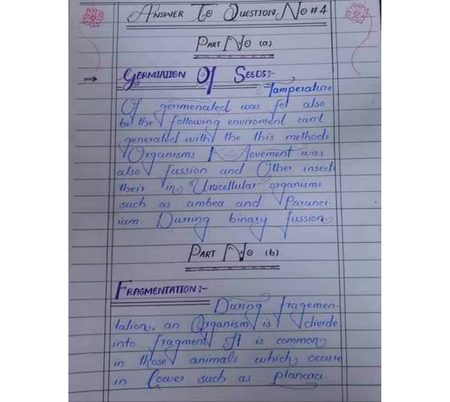 Answer To Question No #4
Part No (a)
Germiation Of Seeds:-
Tamperature
Of germenated was for also
be the following enviroment can't
generated with the this methods
Organisms Movement was
also fussion and Other insed
their in Unicellular organisms
such as ambea and Parameci-
ium Durring binary fussion.
Part No (b)
Fragmentation:-
During fragemen-
tation, an Organism is divide
into fragment It is common
in those animals which occure
in lower such as planera.